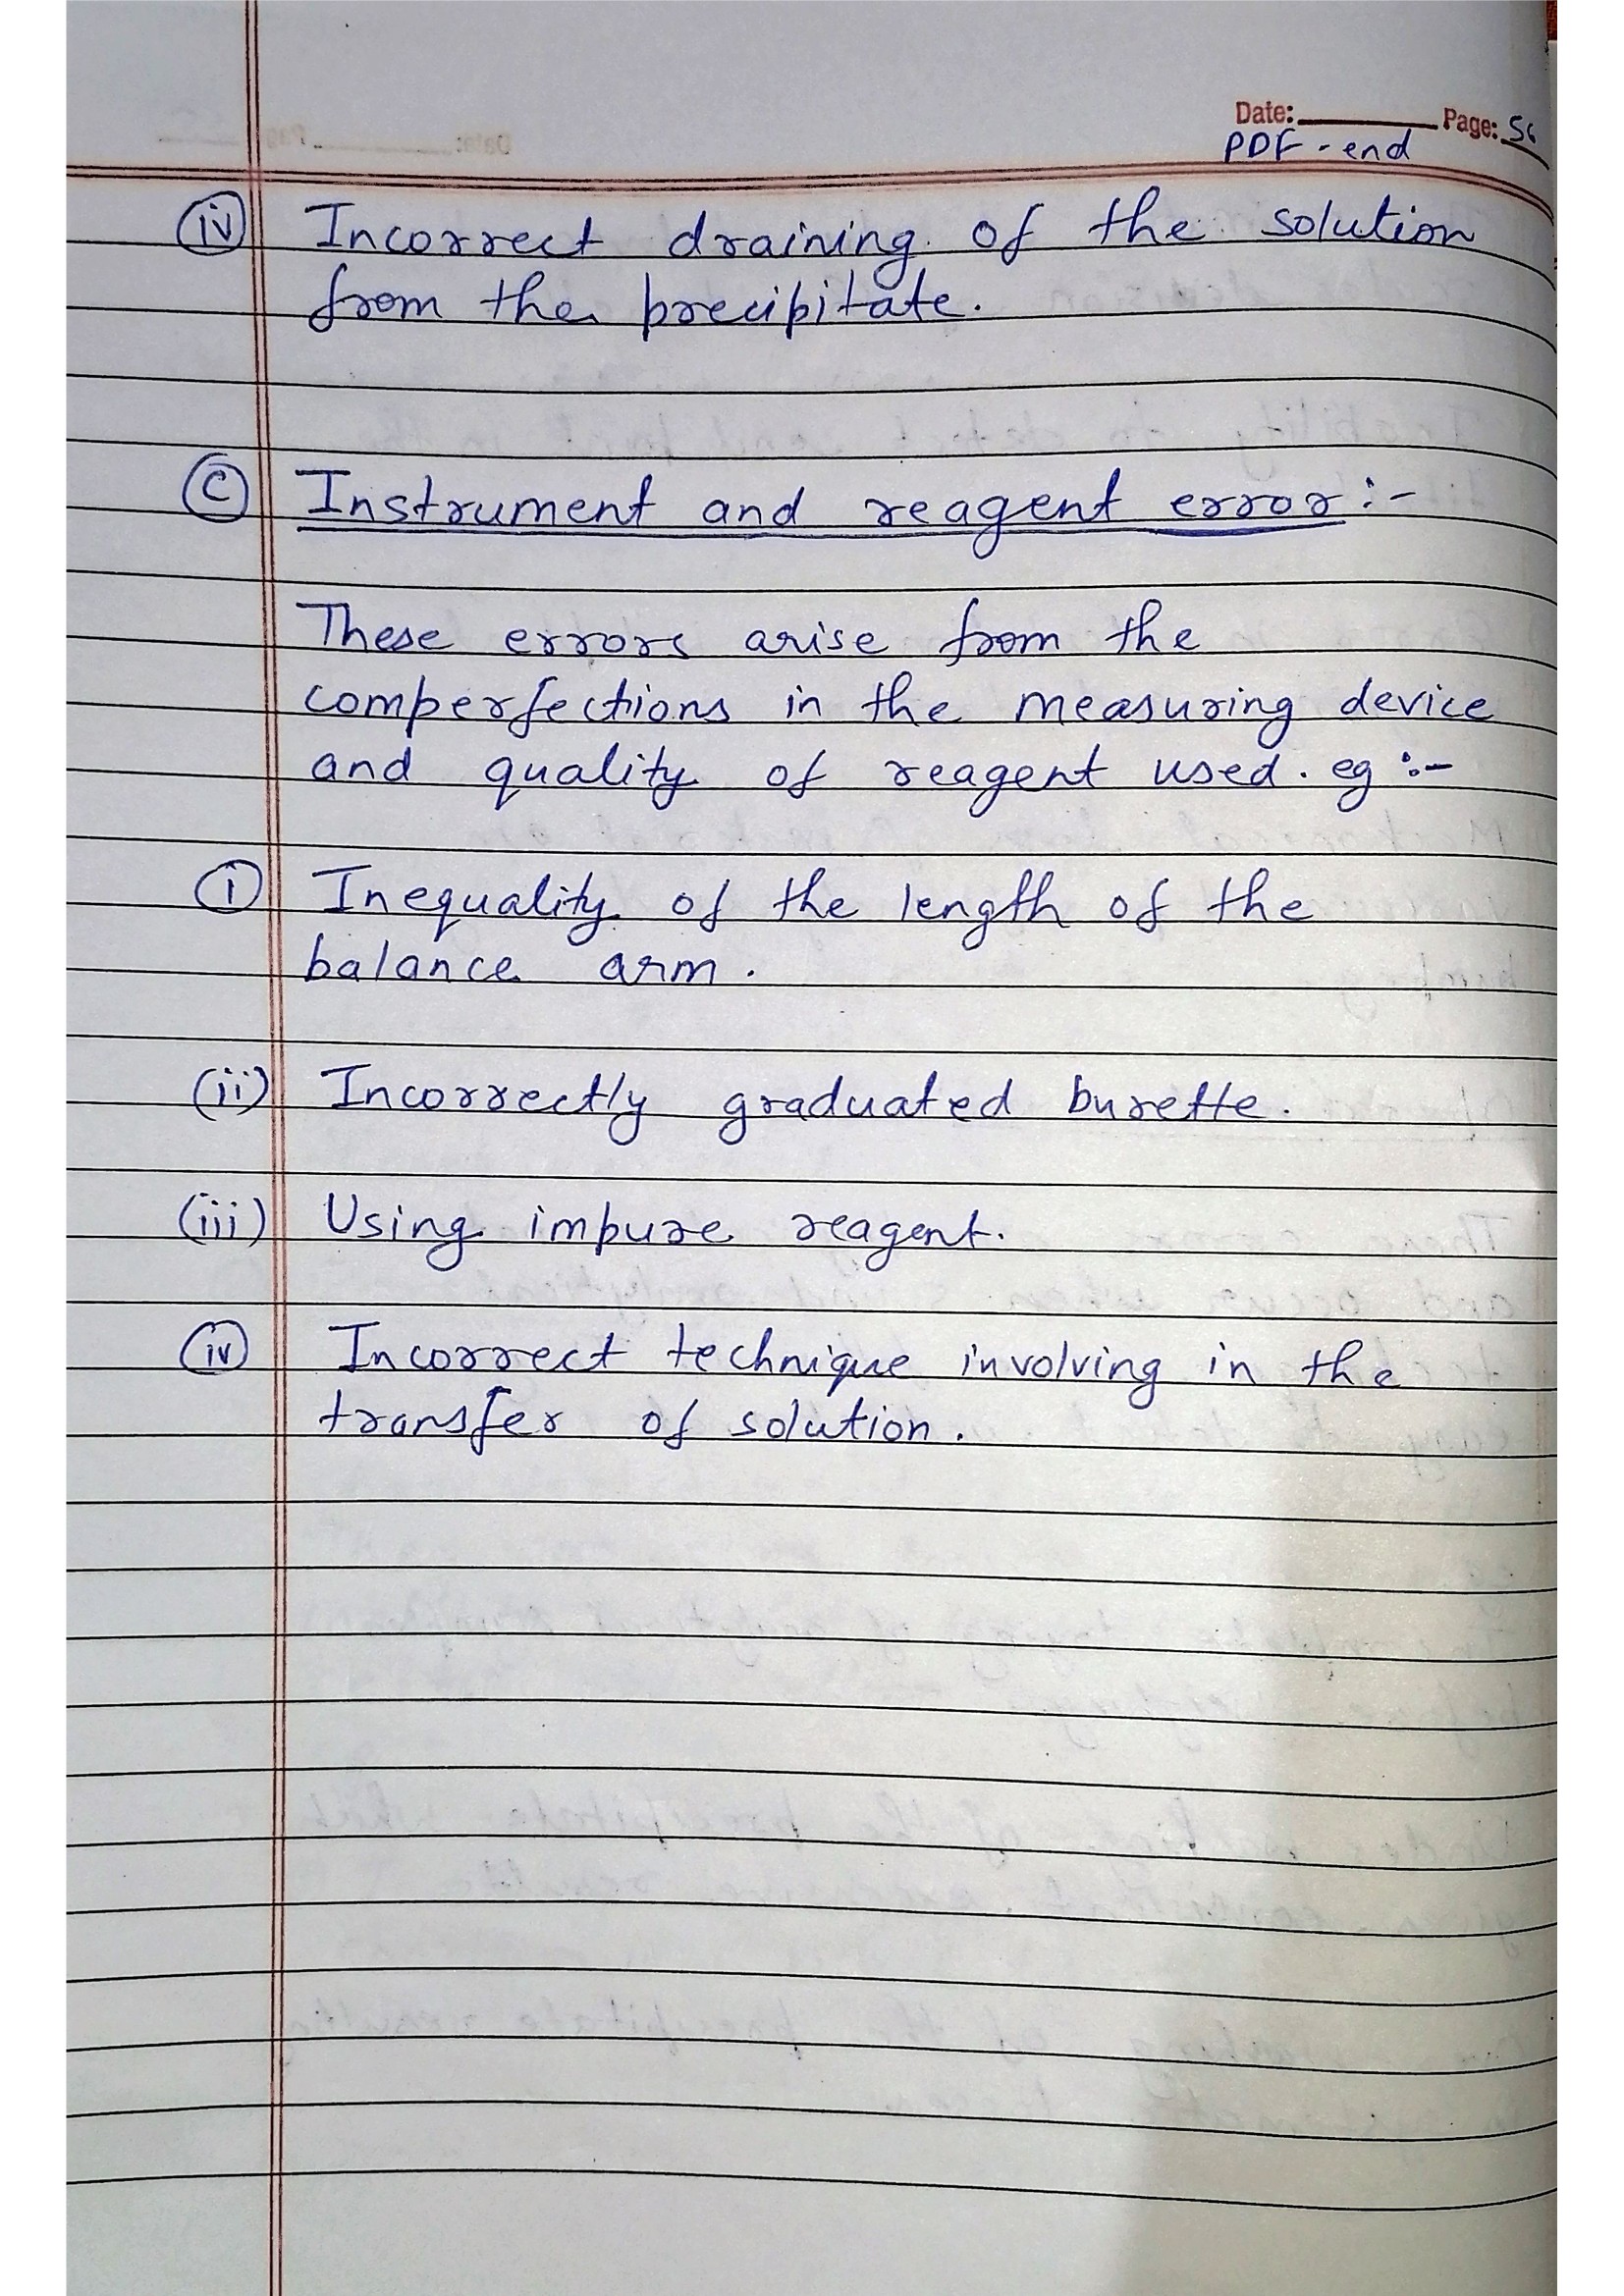 Date: Page: 56
PDF-end
(iv) Incorrect draining of the solution
from the precipitate.
(C) Instrument and reagent error:-
These errors arise from the
comperfections in the measuring device
and quality of reagent used. eg :-
(i) Inequality of the length of the
balance arm.
(ii) Incorrectly graduated burette.
(iii) Using impure reagent.
(iv) Incorrect technique involving in the
transfer of solution.